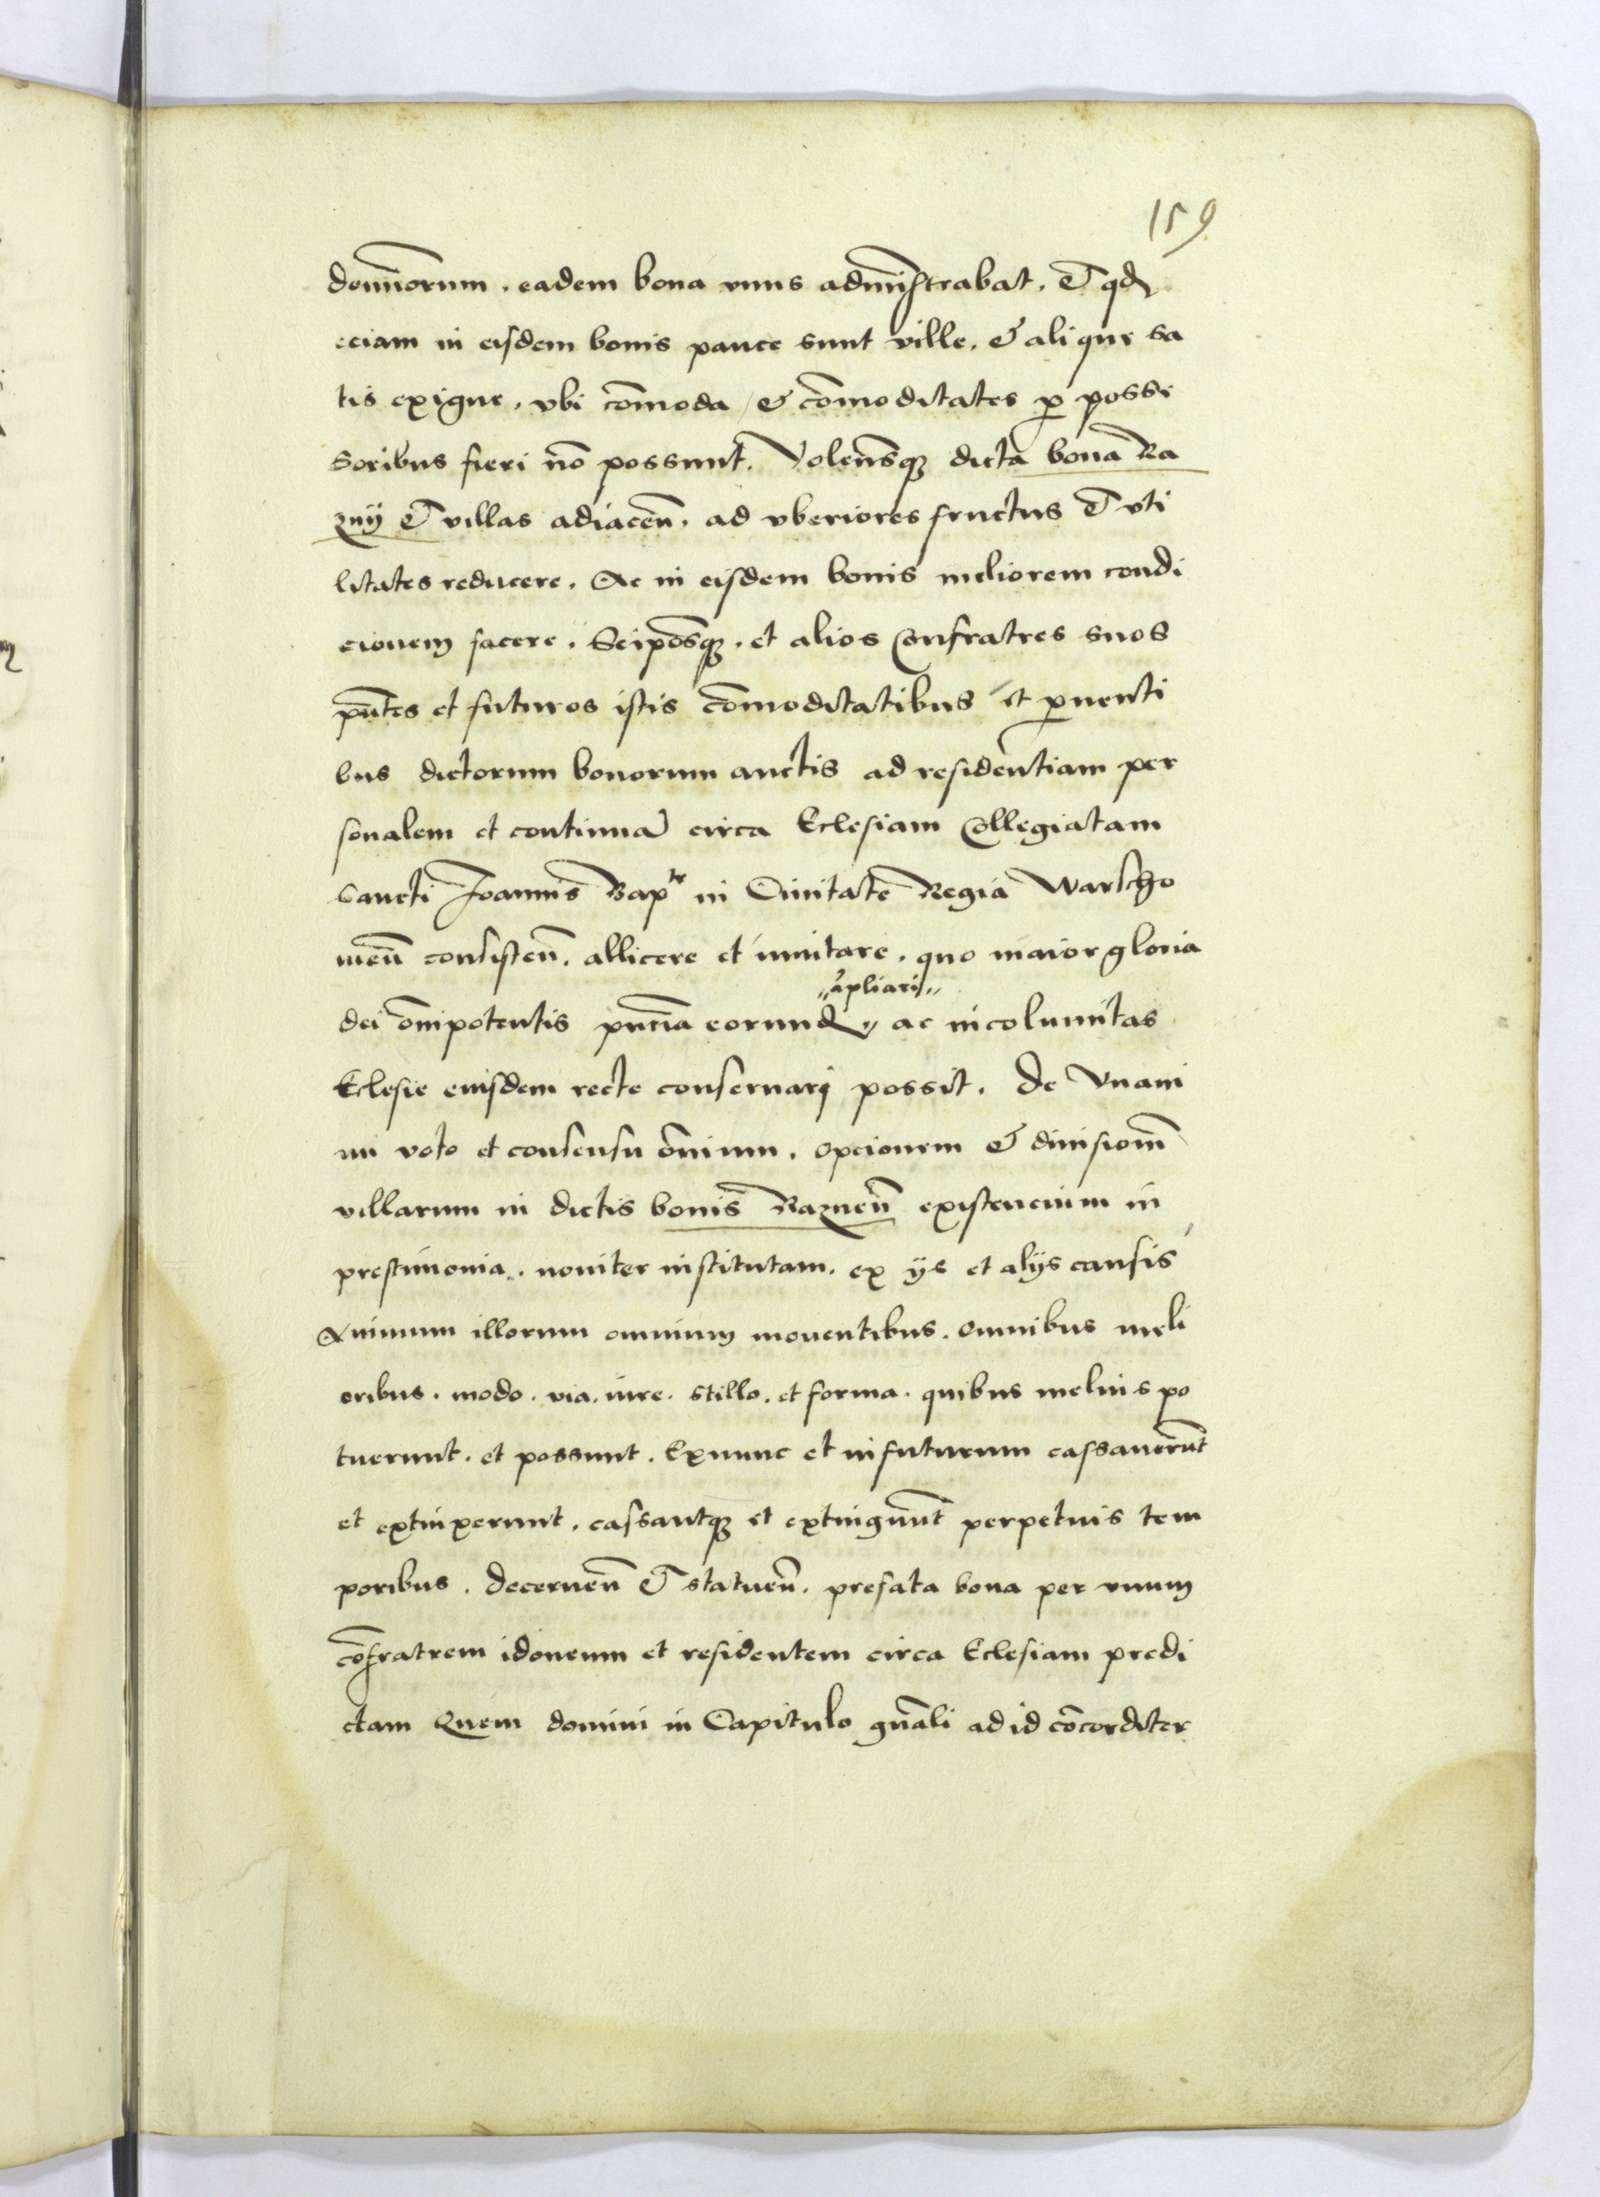 159
dominorum . eadem bona vnus administrabat . Et qd
eciam in eisdem bonis pauce sunt ville . & alique sa
tis exigue . vbi cōmoda / & cōmoditates p possi
soribus fieri nō possunt . Volensq dicta bona Ra
znij Et villas adiaceñ . ad vberiores fructus Et vti
litates reducere . Ac in eisdem bonis meliorem condi
cionem facere . Seipōsq . et alios Confratres suos
pn̄tes et futuros istis cōmoditatibus et puenti
bus dictorum bonorum auctis ad residentiam per
sonalem et continuā circa Eclesiam Collegiatam
Sancti Joannis Bapte in Ciuitate Regia Warscho
uieñ consisteñ . allicere et inuitare . quo maior gloria
dei om̄ipotentis pn̄cia eorund ampliari ac incolumitas
Eclesie eiusdem recte conseruari possit . De Vnani
mi voto et consensu om̄nium . opcionem & diuisionē
villarum in dictis bonis Razneñ existencium in
prestimonia . nouiter institutam . ex ijs et alijs causis
Animum illorum omnium mouentibus . omnibus meli
oribus . modo . via . iure . stillo . et forma . quibus melius po
tuerunt . et possunt . Exnunc et infuturum cassauerūt
et extinxerunt . cassantq et extingūnt perpetuis tem
poribus . Decerneñ Et statueñ . prefata bona per vnum
cōfratrem idoneum et residentem circa Eclesiam predi
ctam Quem domini in Capitulo gn̄ali ad id cōcorditer